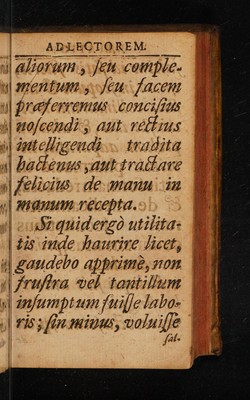 AD LECTOREM.
aliorum, ſeu comple-
mentum, ſeu facem
præferremus conciſius
noſcendi, aut rectius
intelligendi tradita
hactenus, aut tractare
felicius de manu in
manum recepta.
Si quid ergò utilita-
tis inde haurire licet,
gaudebo apprimè, non
fruſtra vel tantillum
inſumptum fuiſſe labo-
ris; ſin minus, voluiſſe
ſal-